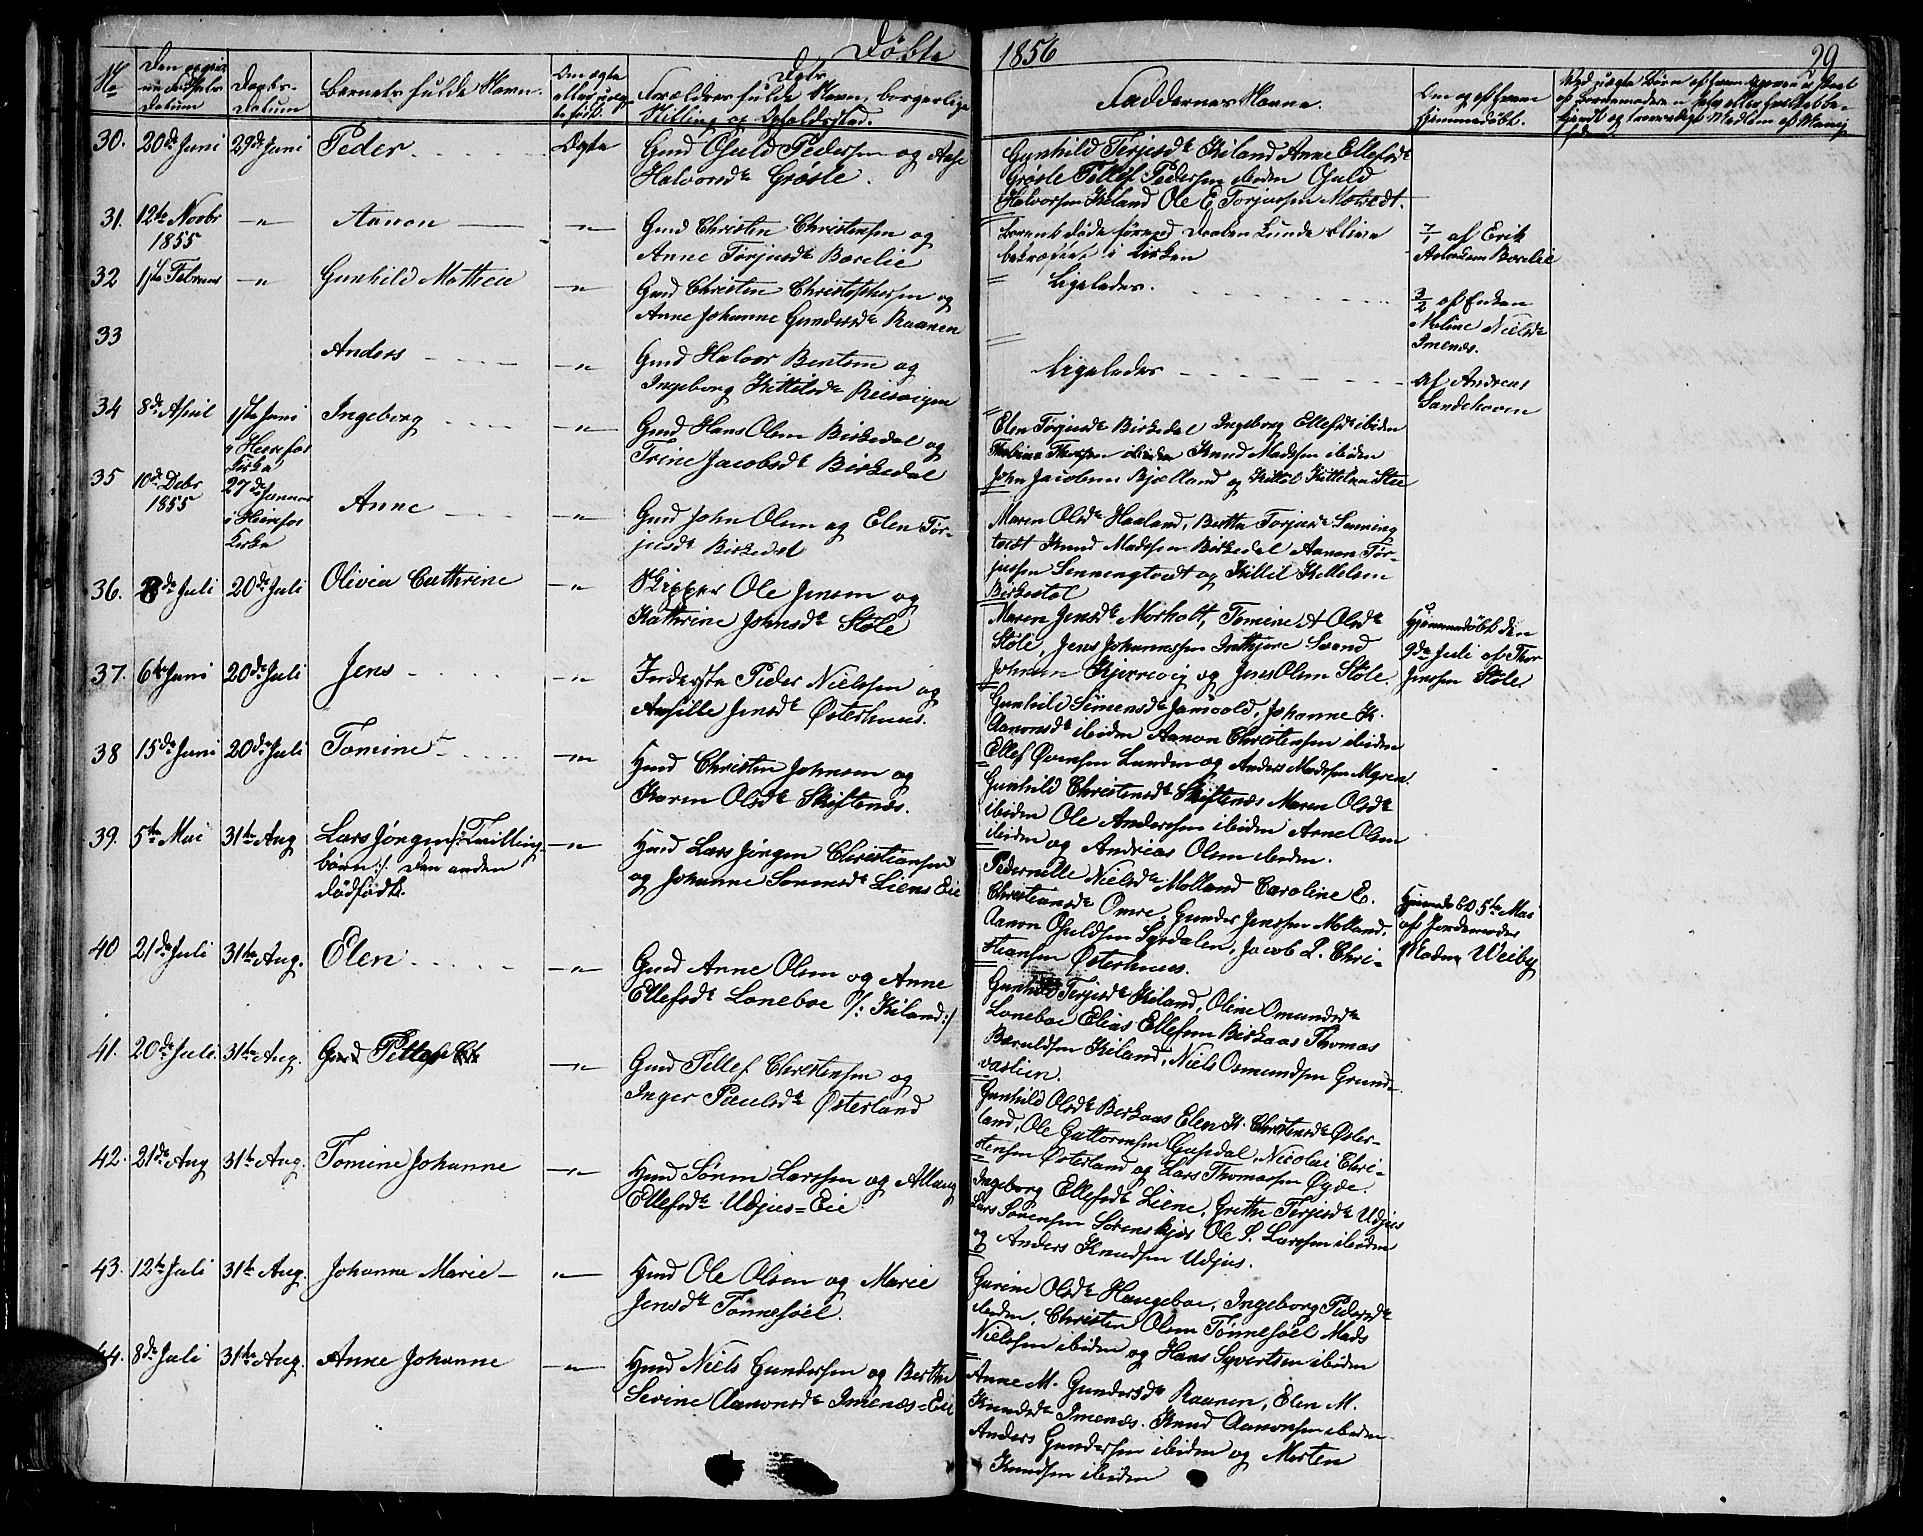 Døbte
1856
29
No
Daabs-
Datum
Barnets fulde Navn.
Forældres fulde Navn, borgerlige
Stilling og Opholdssted.
Faddernes Navne.
Om og af hvem
hjemmedøbt.
30. 20de Juni 29de Juni Peder Ægte Gmd Osuld Pedersen og Aase
Halvorsdt Grøsle.
Gunhild Terjesdt Kiland Anne Ellefsdt
Grøsle Tellef Pedersen ibiden Osuld
Halvorsen Kiland Ole E. Torjussen
31. 12te Novbr
1855
-"- Aanon -"- Gmd Christen Christensen og
Anne Torjusdt Borelie
Barnet døde førend Daaben kunde blive
bekræftet i Kirken
7/1 af Erik
Borelie
32 1ste Februar -"- Gunhild Mathea -"- Gmd Christen Christophersen og
Anne Johanne Gundersdt Raanen
Ligeledes.
3/2 af Enken
Maline Nielsdt
Imenæs.
33 Anders -"- Gmd Halvor Bentsen og
Ingeborg Kittelsdt
Ligeledes
af Andreas
Sandehaven
34 8de April 1ste Juni
i Heirefos
Kirke
Ingeborg -"- Gmd Hans Olsen Birkedal og
Trine Jacobsdt Birkedal
Elen Torjusdt Birkedal Ingeborg Ellefsdt ibiden
Knud Madsen ibiden
John Jacobsen Bjelland og Kittel Kittelsen
35 10de Debr
1855
27de Januar
i Heirefos
Kirke
Anne -"- Gmd John Olsen og Elen Tor-
jusdt Birkedal
Maren Olsdt Haaland, Berthe Torjusdt Senning
tvedt Knud Madsen Birkedal Aanon Tor-
jussen Senningtvedt og Kittil Kittelsen
Birkedal
36. 8de Juli 20de Juli Olivia Cathrine -"- Skipper Ole Jensen og
Kathrine Johnsdt Støle
Maren Jensdt Morholt, Tomine A Olsdt
Støle, Jens Johannessen Svend
Johnsen Kjerrevig og Jens Olsen Støle.
Hjemmedøbt den
9de Juli af Thor
Jenssen Støle.
37. 6te Juni 20de Juli Jens -"- Inderste Peder Nielssen og
Jensdt Østerhuus.
Gunhild Simensdt Jamvold, Johanne K.
Aanonsdt ibiden Aanon Christensen ibiden
Ellef Evensen Lunden og Anders Madssen Myren.
38 15de Juni 20de Juli Tomine -"- Hmd Christen Johnsen og
Karen Olsdt Skiftenæs.
Gunhild Christensdt Skiftenæs Maren Olsdt
ibiden Ole Anderssen ibiden Arne Olsen
ibiden og Andreas Olsen ibiden.
39. 5te Mai 31te Aug Lars Jørgen /:Tvilling
børn:/. Den anden
dødfødt.
-"- Hmd Lars Jørgen Christiansen
og Johanne Sørensdt Liens Eie
Pedernille Nielsdt Molland Caroline E.
Christiansdt Omre, Gunder Jenssen Molland,
Aanon Osuldsen Syrdalen, Jacob L. Chri-
stiansen Østerhuus.
Hjemmedøbt 5te Mai
af Jordemoder
Madm Weiby
40 21de Juli 31te Aug. Elen -"- Gmd Anne Olsen og Anne
Ellefsdt Loneboe /: Kiland:/
Gunhild Terjesdt Kiland, Oline Omundsdt
Loneboe Elias Ellefsen Birkaas Thomas
Kiland, Niels Osmundsen Grund-
vaslien.
41. 20de Juli 31te Aug. Tellef -"- Gmd Tellef Christensen og
Inger Paulsdt Østerland
Gunhild Olsdt Birkaas Elen K. Christensdt Øster-
land, Ole Guttormsen Gusedal, Nicolai Chri-
stensen Østerland og Lars Thomassen Øyde.
42. 21de Aug 31te Aug. Tomine Johanne -"- Hmd Søren Larssen og
Ellefsdt Udjus=Eie
Ingeborg Ellefsdt Liene, Grethe Terjesdt Udjus
Lars Sørensen Sørenskjær Ole S. Larssen ibiden
og Anders Knudsen Udjus.
43. 12te Juli 31te Aug. Johanne Marie -"- Hmd Ole Olsen og Marie
Jensdt Tønnesøel.
Gurine Olsdt Haugeboe, Ingeborg Pedersdt
ibiden, Christen Olsen Tønnesøel Mads
Nielssen ibiden og Hans Syvertsen ibiden
44. 8de Juli 31te Aug. Anne Johanne -"- Hmd Niels Gundersen og Berthe
Serine Aanonsdt Imenæs=Eie
Anne M. Gundersdt Raanen, Elen M.
Knudsdt Imenæs. Knud Aanonsen ibiden
Anders Gundersen ibiden og Morten
Knudsen ibiden